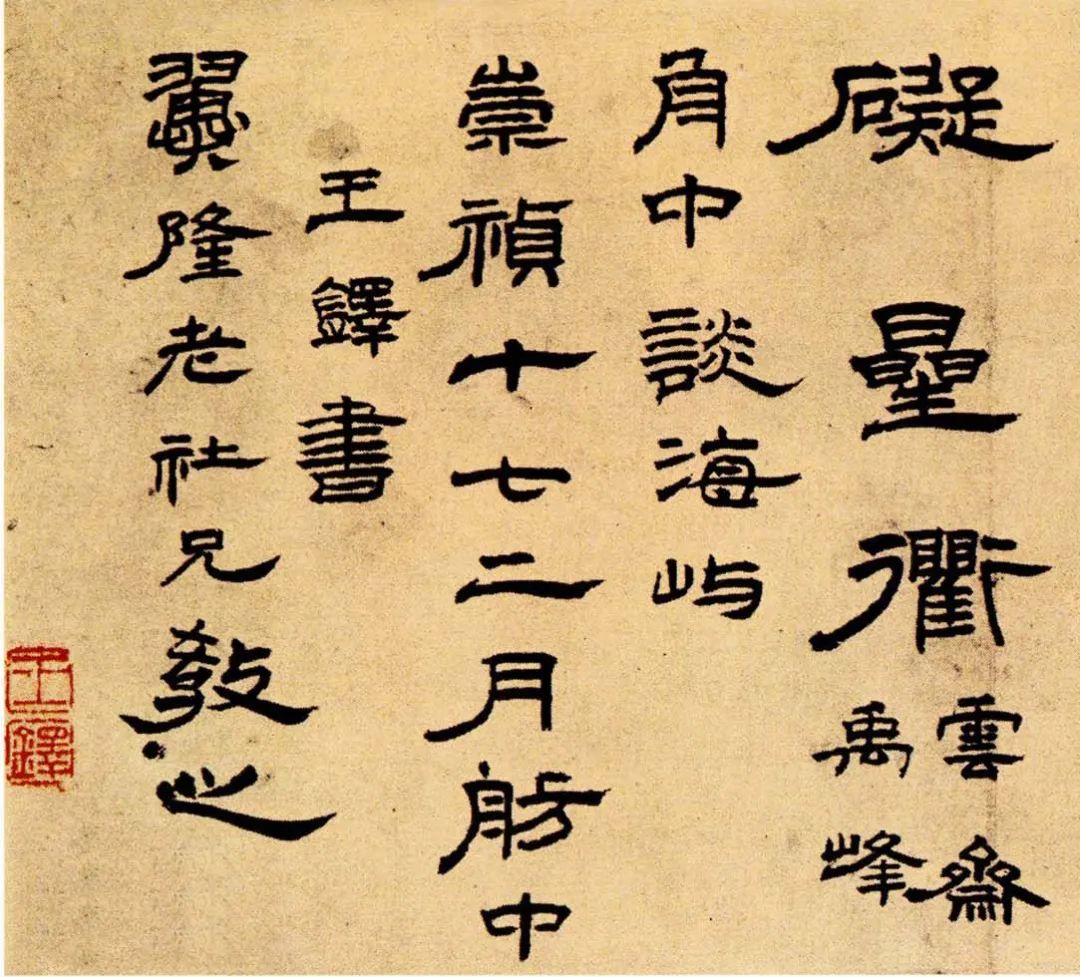 礙曐衢
雲齋
禹峰
角中談海屿
崇禎十七二月舫中
王鐸書
翼隆老社兄教之
王鐸